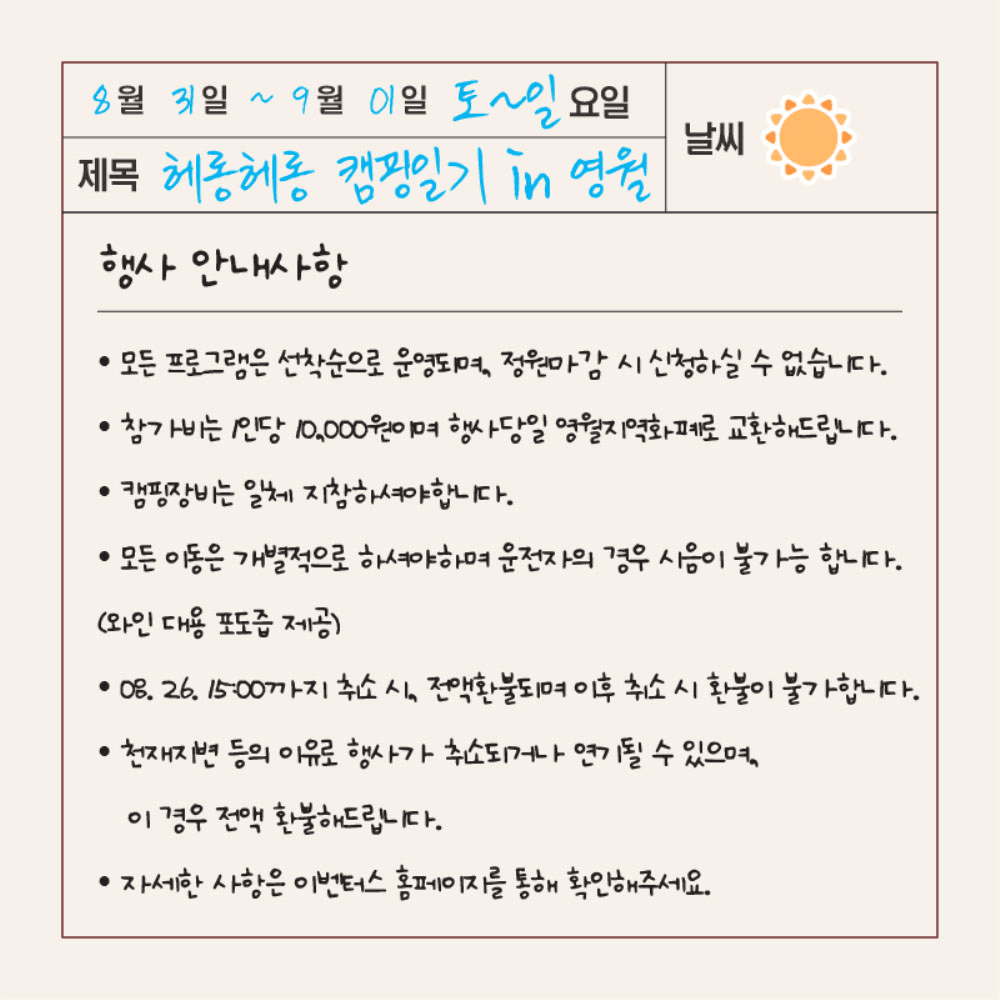 8월 31일 ~ 9월 01일 토~일요일
날씨
제목 헤롱헤롱 캠핑일기 in 영월
행사 안내사항
• 모든 프로그램은 선착순으로 운영되며, 정원마감 시 신청하실 수 없습니다.
• 참가비는 1인당 10,000원이며 행사당일 영월지역화폐로 교환해드립니다.
• 캠핑장비는 일체 지참하셔야합니다.
• 모든 이동은 개별적으로 하셔야하며 운전자의 경우 시음이 불가능 합니다.
(와인 대용 포도즙 제공)
• 08. 26. 15:00까지 취소 시, 전액환불되며 이후 취소 시 환불이 불가합니다.
• 천재지변 등의 이유로 행사가 취소되거나 연기될 수 있으며,
이 경우 전액 환불해드립니다.
• 자세한 사항은 이벤터스 홈페이지를 통해 확인해주세요.